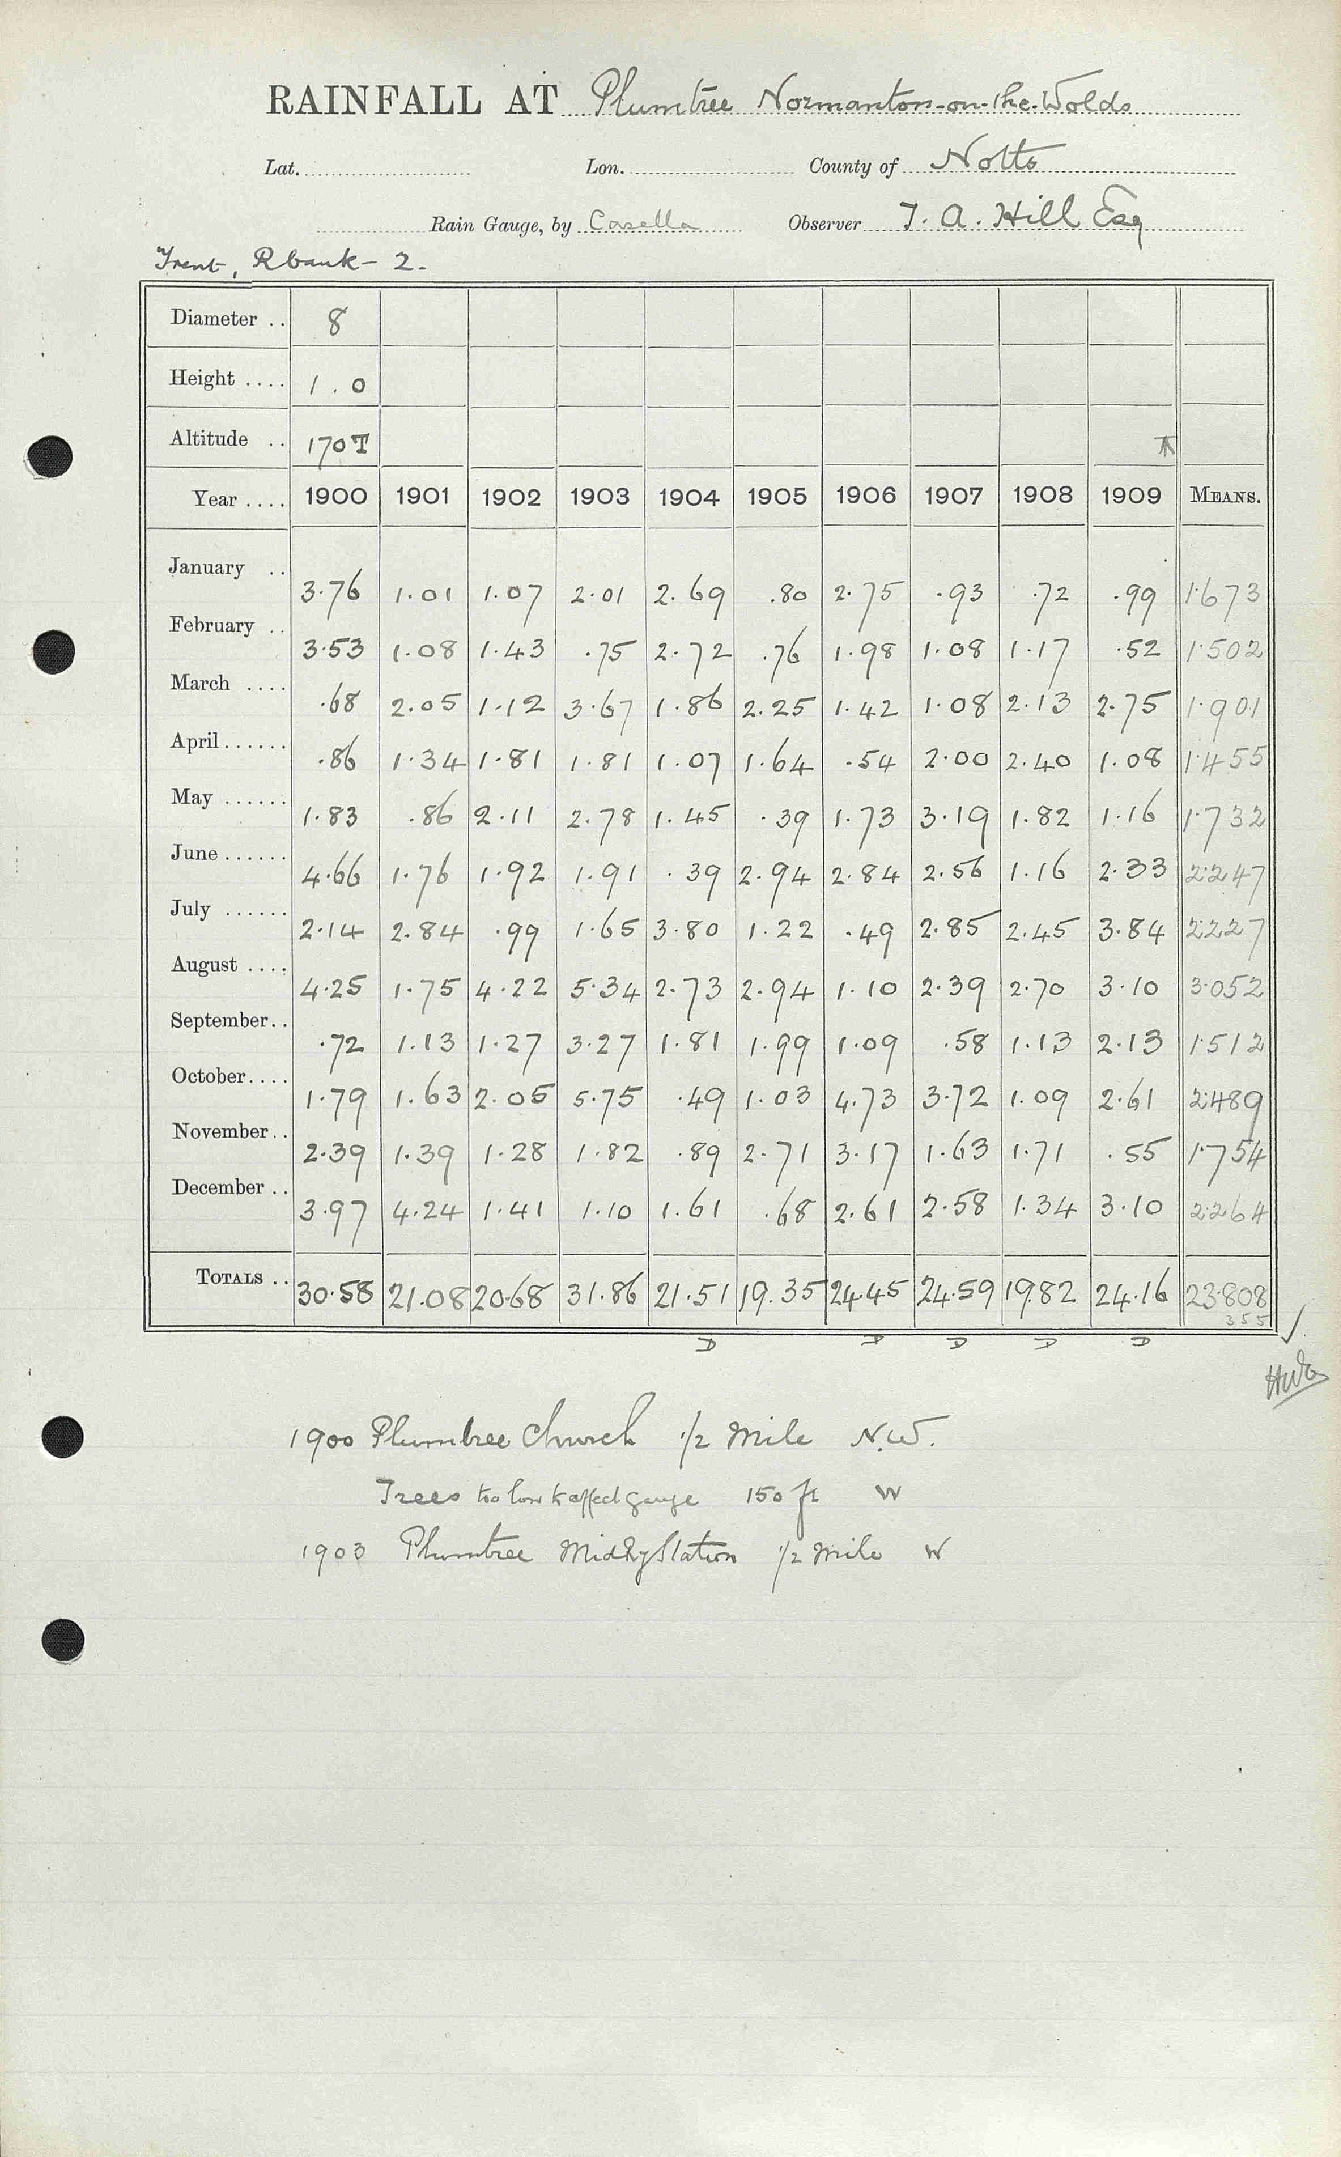 RAINFALL AT Plumtree Normanton-on-the-Wolds
Lat. Lon. County of Notts
Rain Gauge, by Casella Observer T. A. Hill Esq
Trent, R bank - 2.
Diameter .. 8
Height .... 1.0
Altitude .. 170T
Year .... 1900 1901 1902 1903 1904 1905 1906 1907 1908 1909 MEANS.
January .. 3.76 1.01 1.07 2.01 2.69 .80 2.75 .93 .72 .99 1.673
February .. 3.53 1.08 1.43 .75 2.72 .76 1.98 1.08 1.17 .52 1.502
March .... .68 2.05 1.12 3.67 1.86 2.25 1.42 1.08 2.13 2.75 1.901
April ...... .86 1.34 1.81 1.81 1.07 1.64 .54 2.00 2.40 1.08 1.455
May ...... 1.83 .86 2.11 2.78 1.45 .39 1.73 3.19 1.82 1.16 1.732
June ...... 4.66 1.76 1.92 1.91 .39 2.94 2.84 2.56 1.16 2.33 2.247
July ...... 2.14 2.84 .99 1.65 3.80 1.22 .49 2.85 2.45 3.84 2.227
August .... 4.25 1.75 4.22 5.34 2.73 2.94 1.10 2.39 2.70 3.10 3.052
September.. .72 1.13 1.27 3.27 1.81 1.99 1.09 .58 1.13 2.13 1.512
October.... 1.79 1.63 2.05 5.75 .49 1.03 4.73 3.72 1.09 2.61 2.489
November.. 2.39 1.39 1.28 1.82 .89 2.71 3.17 1.63 1.71 .55 1.754
December .. 3.97 4.24 1.41 1.10 1.61 .68 2.61 2.58 1.34 3.10 2.264
TOTALS .. 30.58 21.08 20.68 31.86 21.51 19.35 24.45 24.59 19.82 24.16 23.808
355
D D D D D
1900 Plumtree Church 1/2 mile N.W.
Trees too low to affect gauge 150 ft W
1903 Plumtree Mid Ry Station 1/2 mile W